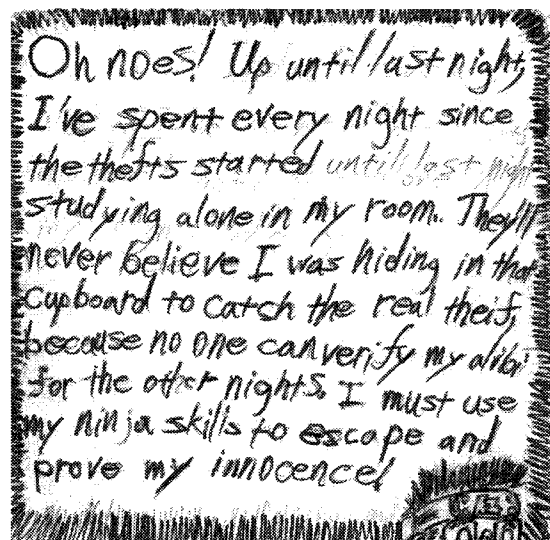 Oh noes! Up until last night,
I've spent every night since
the thefts started until last night
studying alone in my room. They'll
never believe I was hiding in that
cupboard to catch the real theif,
because no one can verify my alibi
for the other nights. I must use
my ninja skills to escape and
prove my innocence!